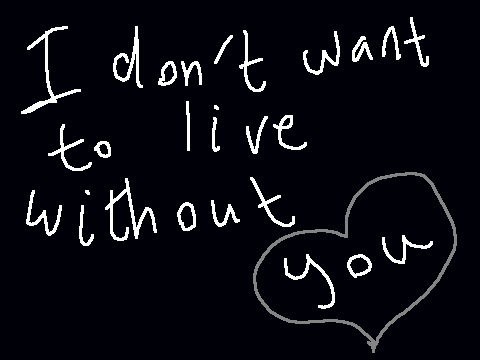 I don't want
to live
without
you